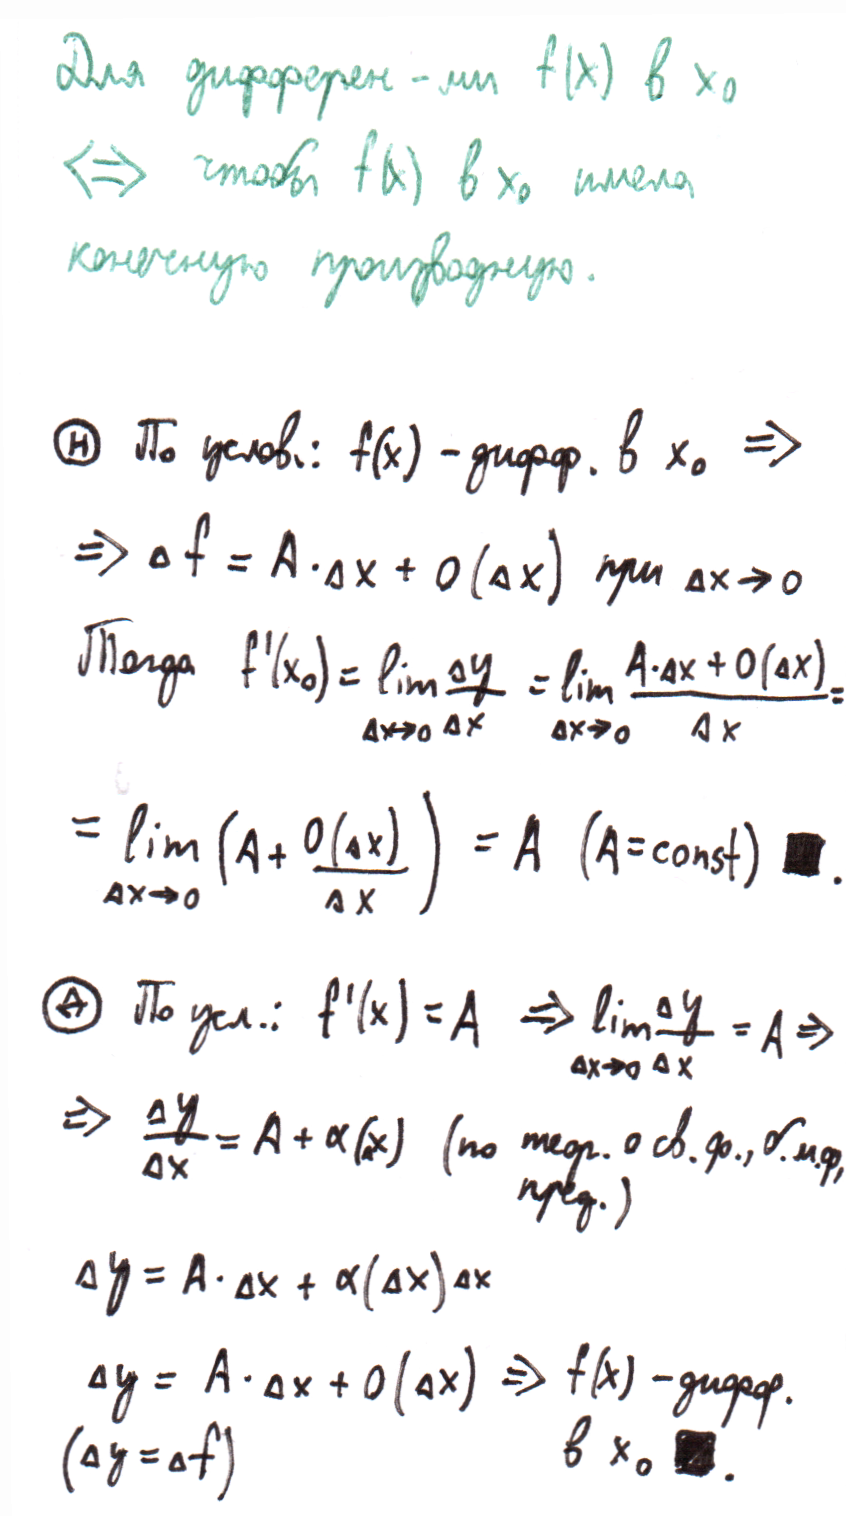 Для дифферен-ми f(x) в x₀
<=> чтобы f(x) в x₀ имела
конечную производную.
Ⓗ По услов.: f(x) - дифф. в x₀ =>
=> Δf = A·Δx + o(Δx) при Δx→0
Тогда f'(x₀) = lim Δx→0 Δy/Δx = lim Δx→0 (A·Δx + o(Δx))/Δx =
= lim Δx→0 (A + o(Δx)/Δx) = A (A = const) ■.
Ⓓ По усл.: f'(x) = A => lim Δx→0 Δy/Δx = A =>
=> Δy/Δx = A + α(Δx) (по теор. о св. ф., б.м.ф,
пред.)
Δy = A·Δx + α(Δx)Δx
Δy = A·Δx + o(Δx) => f(x) - дифф.
(Δy = Δf) в x₀ ■.